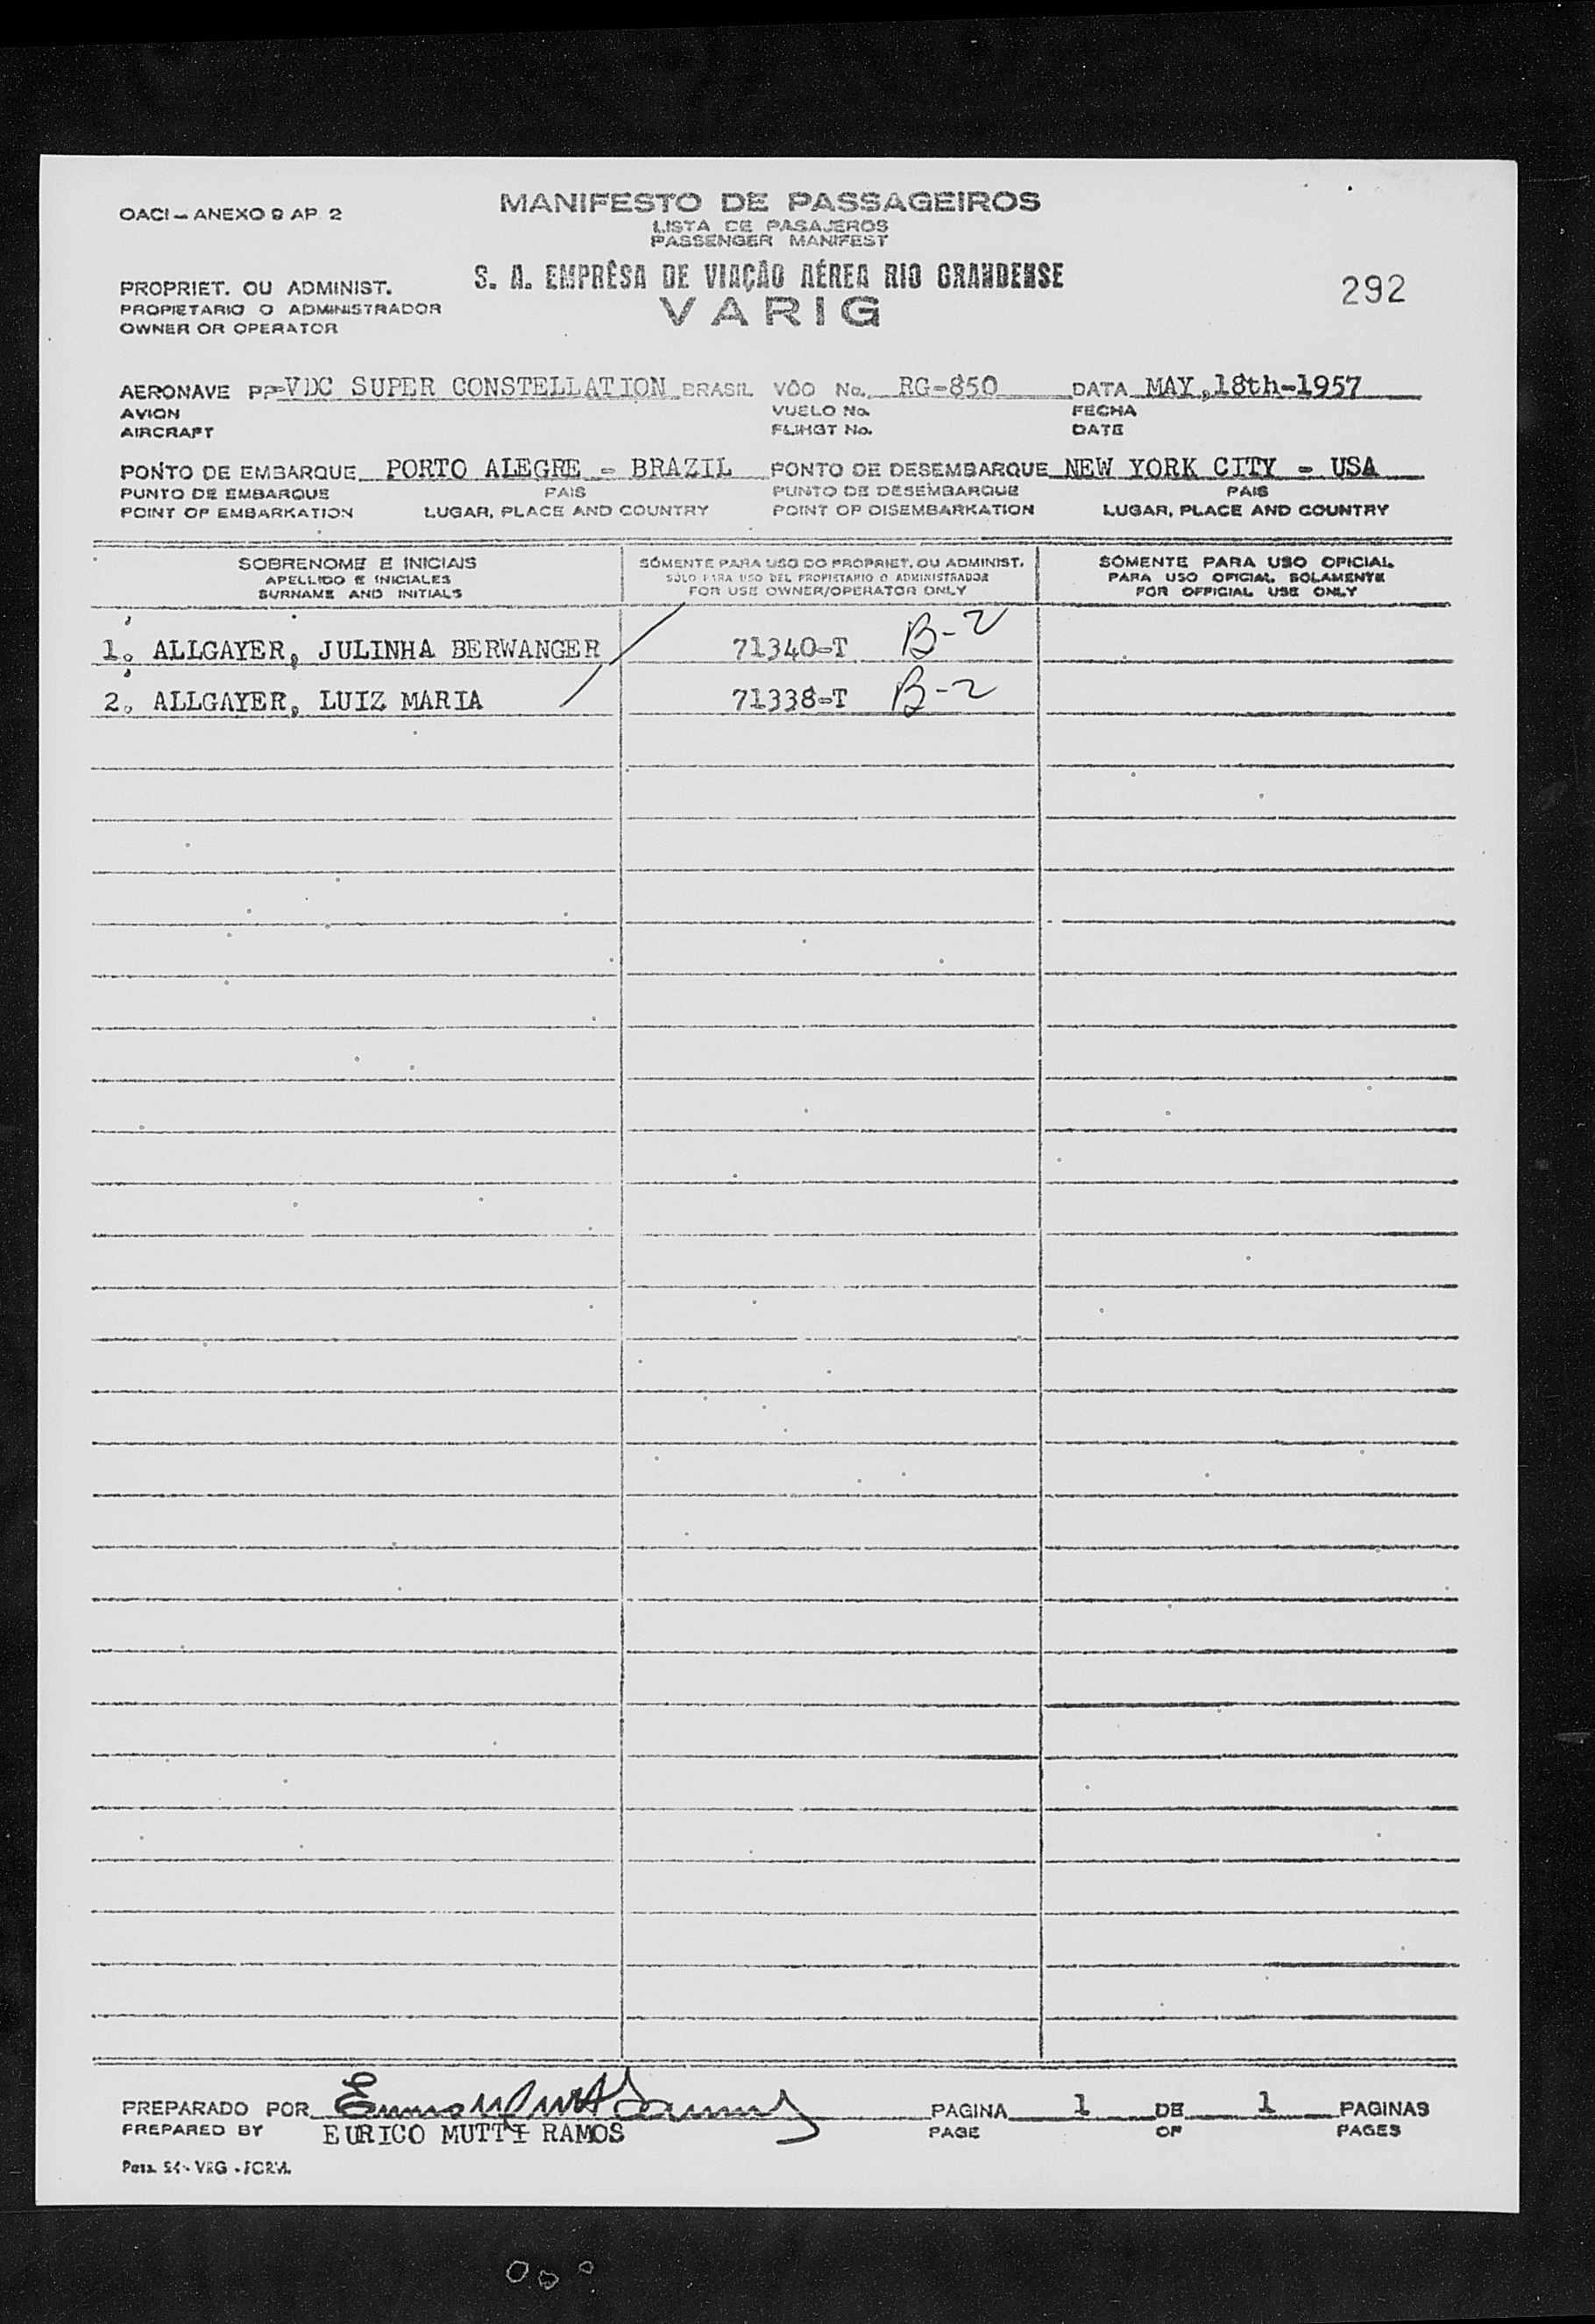 OACI - ANEXO 9 AP. 2
MANIFESTO DE PASSAGEIROS
LISTA DE PASAJEROS
PASSENGER MANIFEST
S. A. EMPRÊSA DE VIAÇÃO AÉREA RIO GRANDENSE
VARIG
292
PROPRIET. OU ADMINIST.
PROPIETARIO O ADMINISTRADOR
OWNER OR OPERATOR
AERONAVE PP-VDC SUPER CONSTELLATION BRASIL VÔO No. RG-850 DATA MAY,18th-1957
AVION VUELO No. FECHA
AIRCRAFT FLIHGT No. DATE
PONTO DE EMBARQUE PORTO ALEGRE - BRAZIL PONTO DE DESEMBARQUE NEW YORK CITY - USA
PUNTO DE EMBARQUE PAIS PUNTO DE DESEMBARQUE PAIS
POINT OF EMBARKATION LUGAR, PLACE AND COUNTRY POINT OF DISEMBARKATION LUGAR, PLACE AND COUNTRY
SOBRENOME E INICIAIS SÓMENTE PARA USO DO PROPRIET. OU ADMINIST. SÓMENTE PARA USO OFICIAL
APELLIDO E INICIALES SOLO PARA USO DEL PROPIETARIO O ADMINISTRADOR PARA USO OFICIAL SOLAMENTE
SURNAME AND INITIALS FOR USE OWNER/OPERATOR ONLY FOR OFFICIAL USE ONLY
1. ALLGAYER, JULINHA BERWANGER 71340-T B-2
2. ALLGAYER, LUIZ MARIA 71338-T B-2
PREPARADO POR PAGINA 1 DE 1 PAGINAS
PREPARED BY EURICO MUTTI RAMOS PAGE OF PAGES
VRG - FORM.